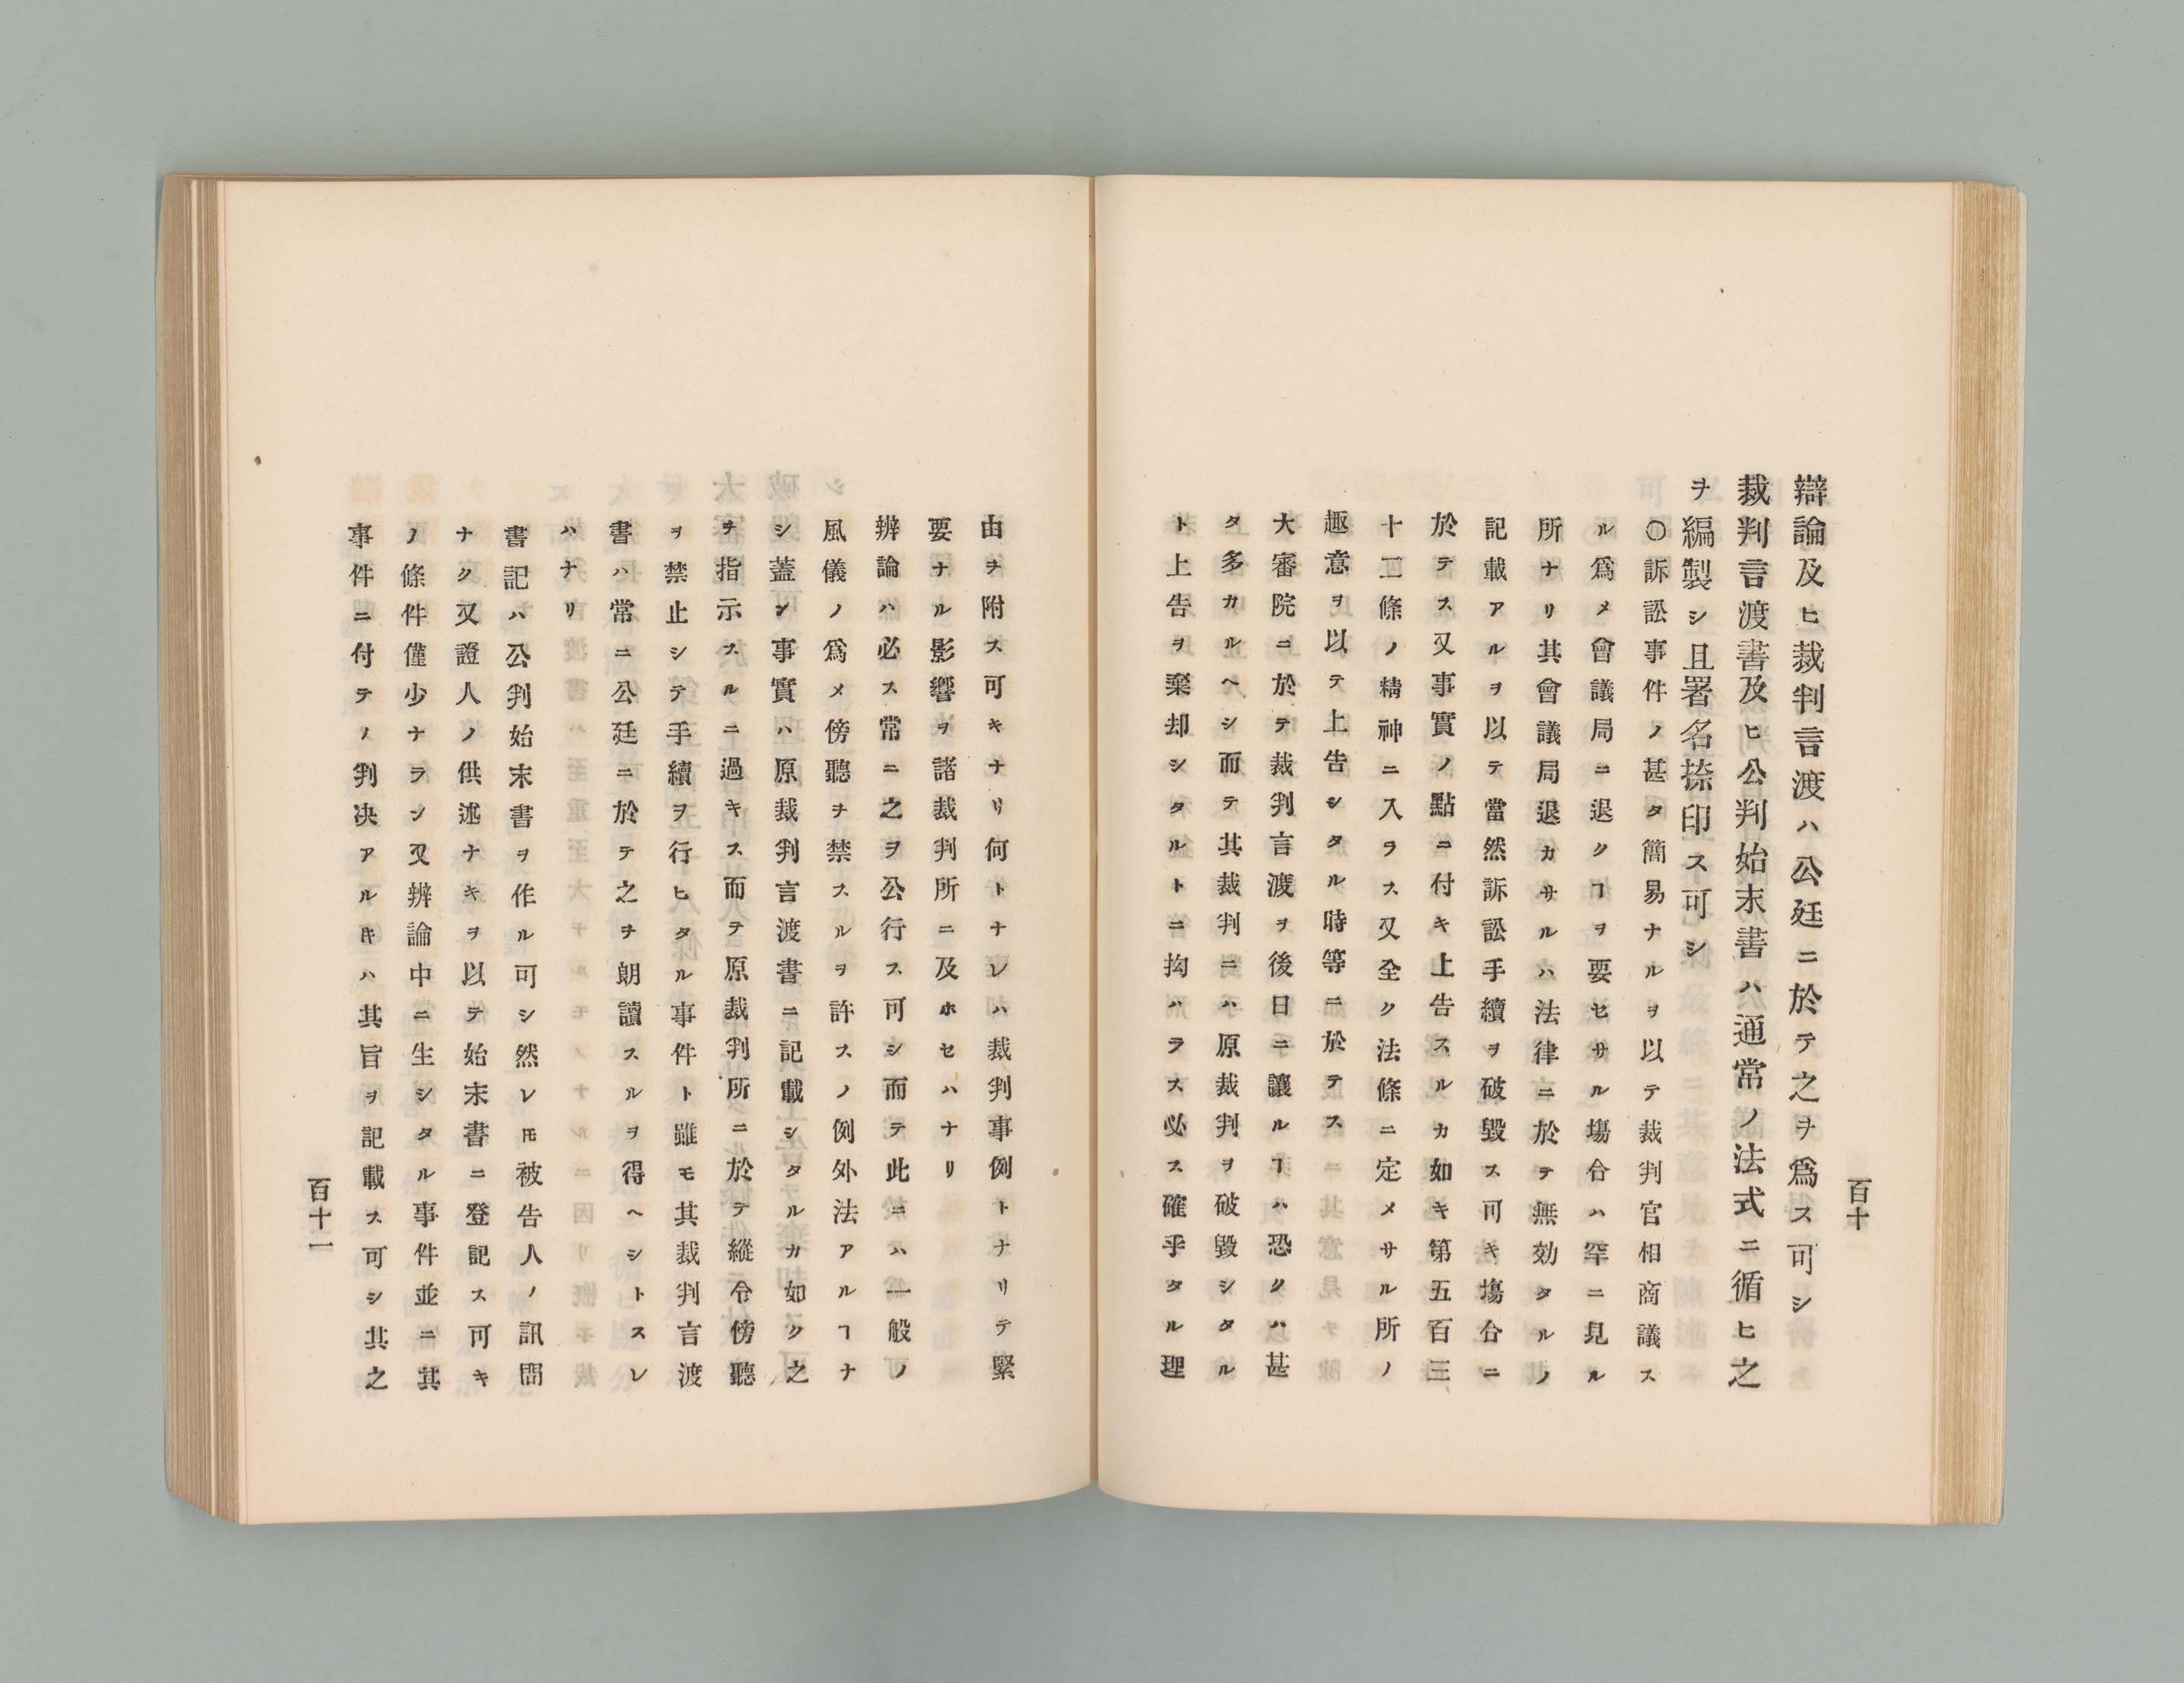 百十
辯論及ヒ裁判言渡ハ公廷ニ於テ之ヲ爲ス可シ
裁判言渡書及ヒ公判始末書ハ通常ノ法式ニ循ヒ之
ヲ編製シ且署名捺印ス可シ
〇訴訟事件ノ甚タ簡易ナルヲ以テ裁判官相商議ス
ル爲メ會議局ニ退クヿヲ要セサル塲合ハ罕ニ見ル
所ナリ其會議局退カサルハ法律ニ於テ無効タルノ
記載アルヲ以テ當然訴訟手續ヲ破毀ス可キ塲合ニ
於テス又事實ノ點ニ付キ上告スルカ如キ第五百三
十二條ノ精神ニ入ラス又全ク法條ニ定メサル所ノ
趣意ヲ以テ上告シタル時等ニ於テス
大審院ニ於テ裁判言渡ヲ後日ニ讓ルヿハ恐クハ甚
タ多カルヘシ而テ其裁判ニハ原裁判ヲ破毀シタル
ト上告ヲ棄却シタルトニ拘ハラス必ス確乎タル理
由ヲ附ス可キナリ何トナレハ裁判事例トナリテ緊
要ナル影響ヲ諸裁判所ニ及ホセハナリ
辨論ハ必ス常ニ之ヲ公行ス可シ而テ此ニハ一般ノ
風儀ノ爲メ傍聽ヲ禁スルヲ許スノ例外法アルヿナ
シ蓋シ事實ハ原裁判言渡書ニ記載シタルカ如ク之
ヲ指示スルニ過キス而テ原裁判所ニ於テ縱令傍聽
ヲ禁止シテ手續ヲ行ヒタル事件ト雖モ其裁判言渡
書ハ常ニ公廷ニ於テ之ヲ朗讀スルヲ得ヘシトスレ
ハナリ
書記ハ公判始末書ヲ作ル可シ然レ𪜈被告人ノ訊問
ナク又證人ノ供述ナキヲ以テ始末書ニ登記ス可キ
ノ條件僅少ナラン又辨論中ニ生シタル事件並ニ其
事件ニ付テノ判決アルキハ其旨ヲ記載ス可シ其之
百十一